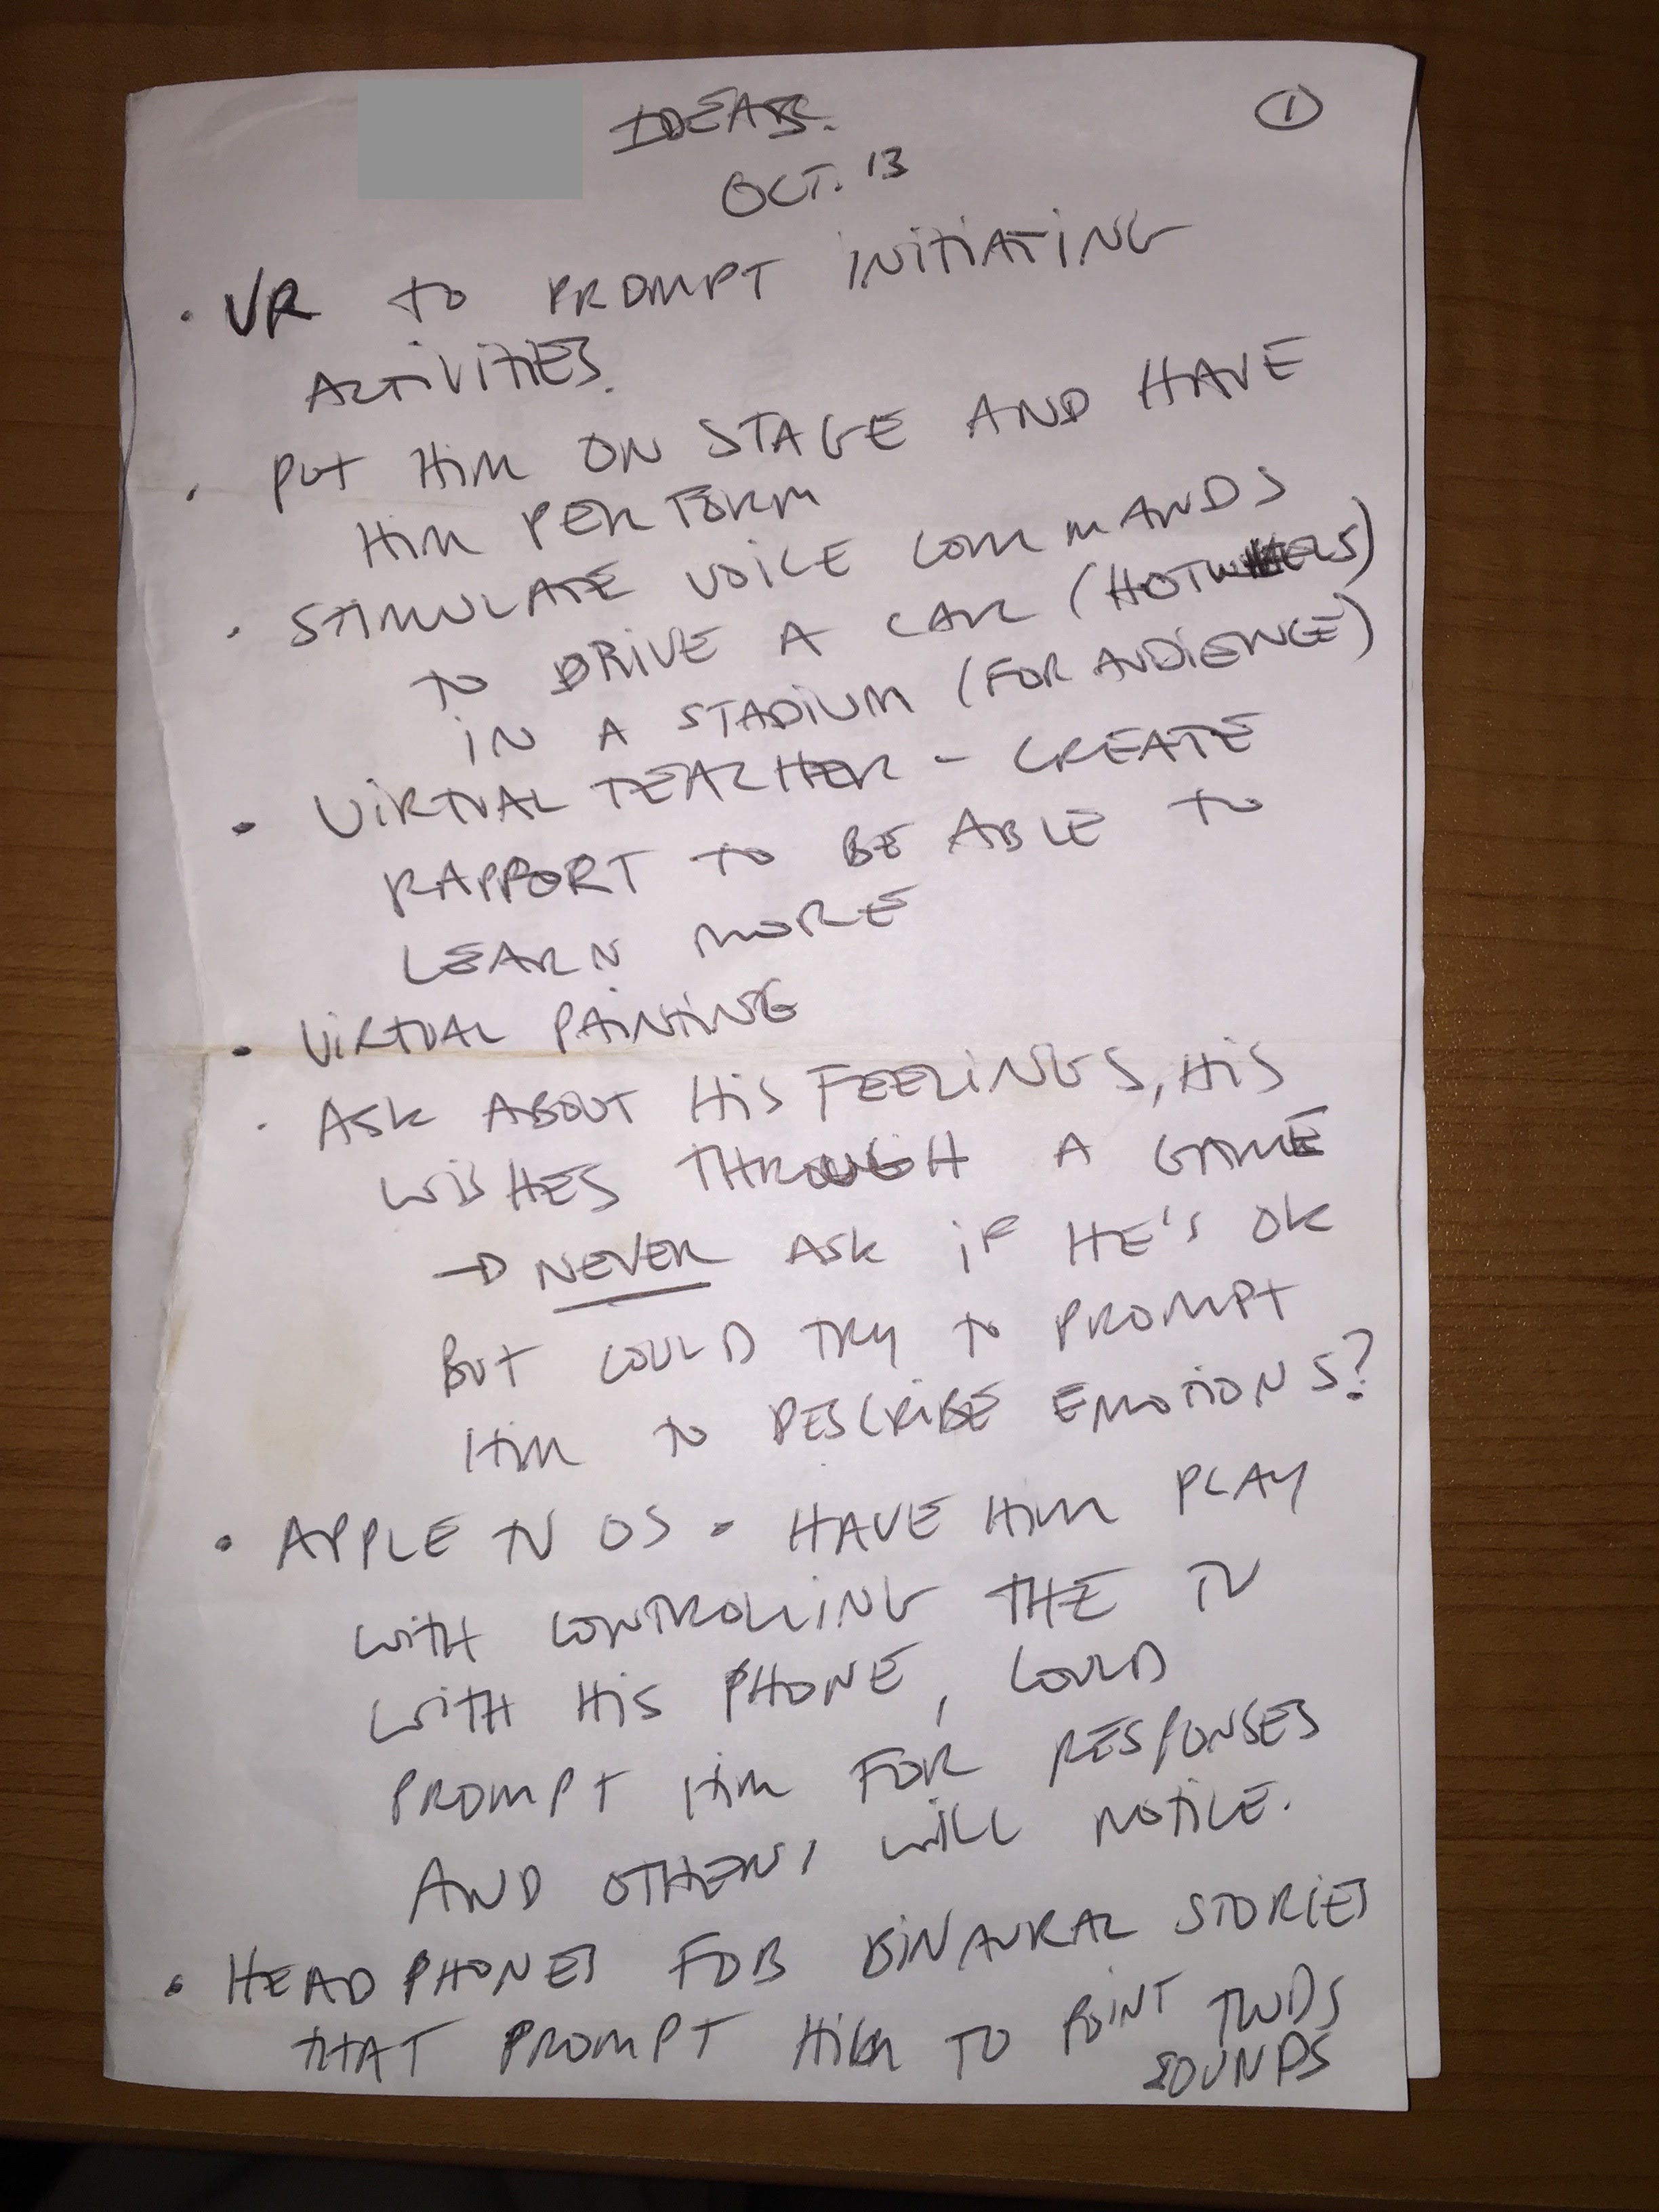 IDEAS.
①
OCT. 13
· VR TO PROMPT INITIATING
ACTIVITIES.
· PUT HIM ON STAGE AND HAVE
HIM PERFORM
· STIMULATE VOICE COMMANDS
TO DRIVE A CAR (HOTWHEELS)
IN A STADIUM (FOR AUDIENCE)
· VIRTUAL TEACHER - CREATE
RAPPORT TO BE ABLE TO
LEARN MORE
· VIRTUAL PAINTING
· ASK ABOUT HIS FEELINGS, HIS
WISHES THROUGH A GAME
→ NEVER ASK IF HE'S OK
BUT COULD TRY TO PROMPT
HIM TO DESCRIBE EMOTIONS?
· APPLE TV OS - HAVE HIM PLAY
WITH CONTROLLING THE TV
WITH HIS PHONE, COULD
PROMPT HIM FOR RESPONSES
AND OTHERS WILL NOTICE.
· HEADPHONES FOR BINAURAL STORIES
THAT PROMPT HIM TO POINT TWDS
SOUNDS